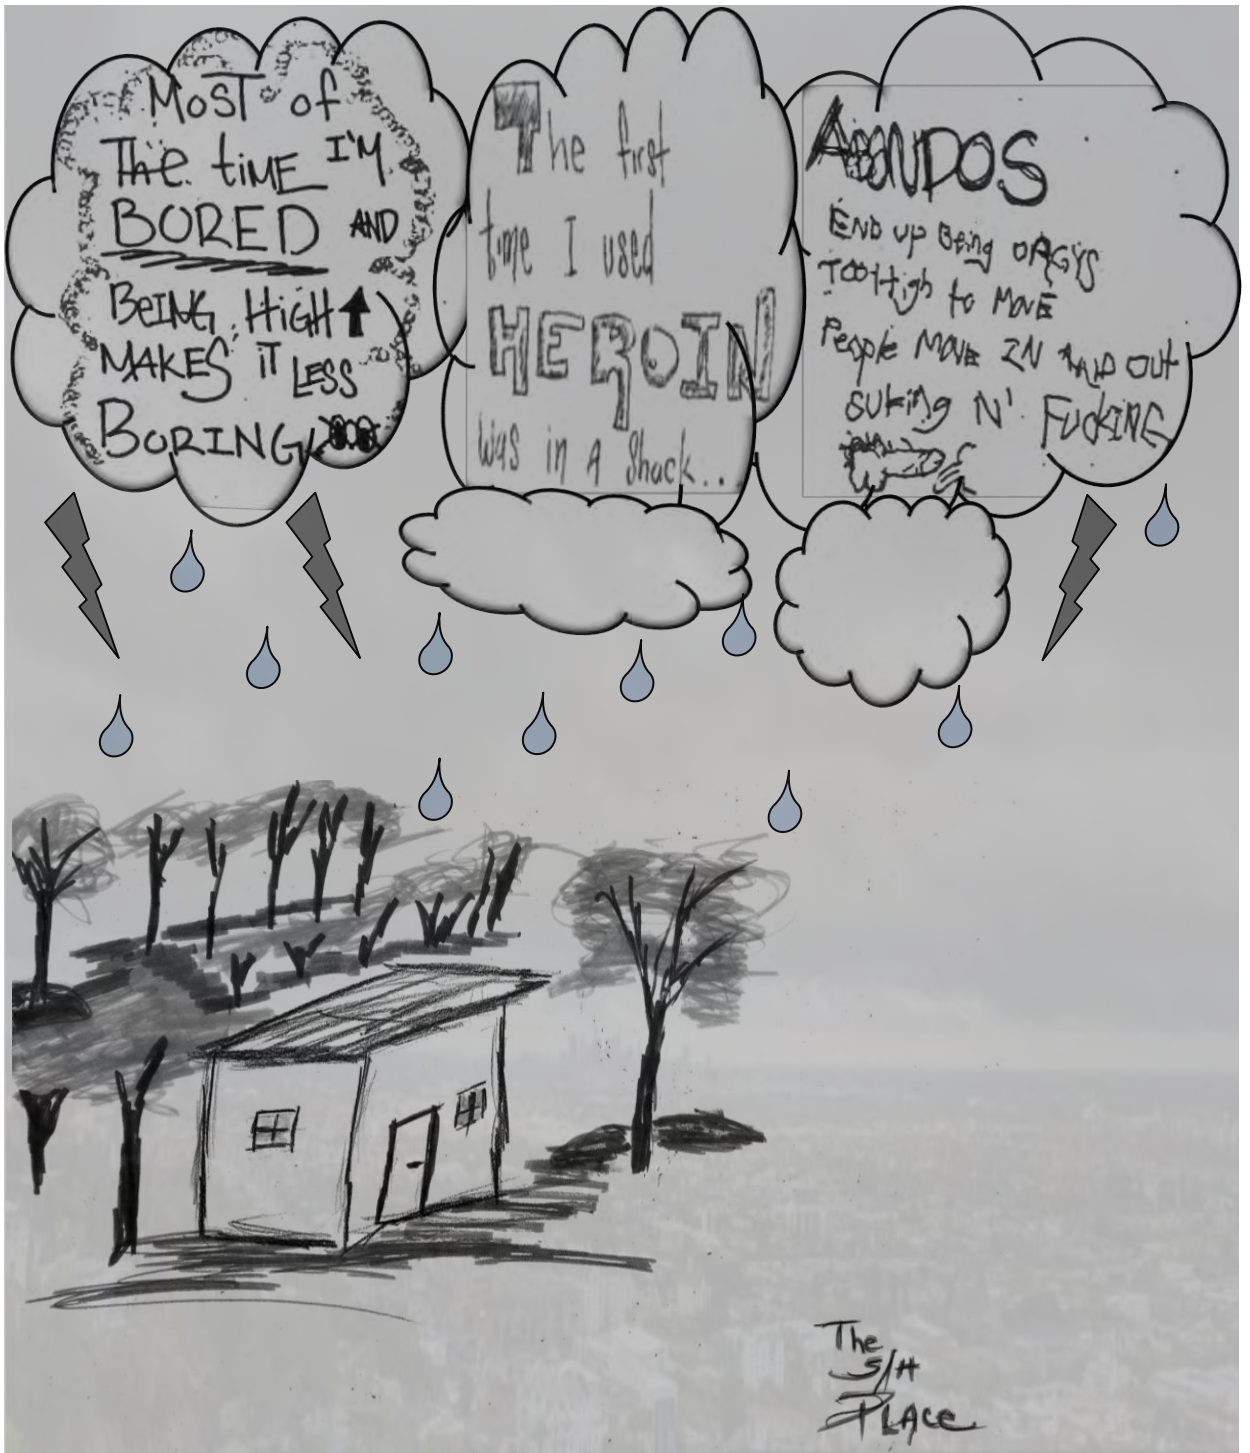 MOST of
The time I'M
BORED AND
BEING HIGH
MAKES IT LESS
BORING
The first
time I used
HEROIN
was in A Shack..
ABANDOS
END up Being ORGYS
TOO High to MOVE
People MOVE IN AND OUT
SUKing N' FUCKING
The
S/H
PLACE